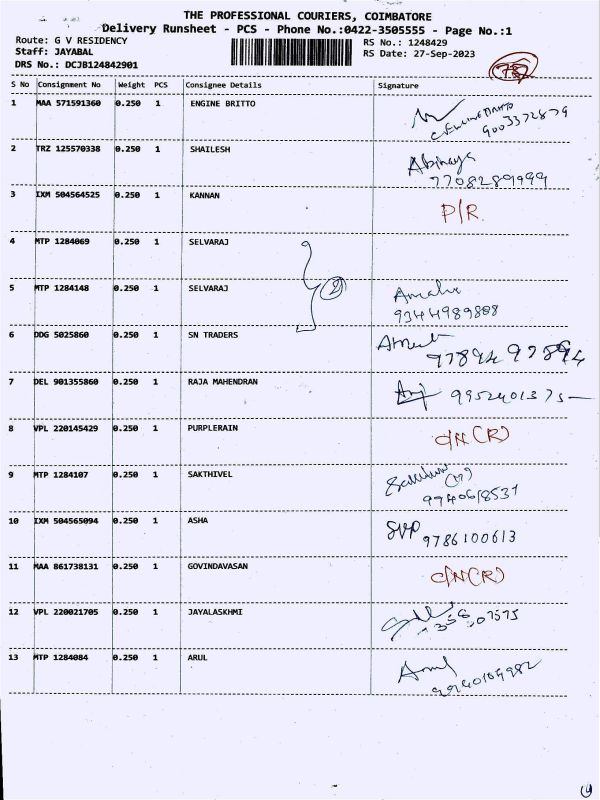 THE PROFESSIONAL COURIERS, COIMBATORE
Delivery Runsheet - PCS - Phone No.:0422-3505555 - Page No.:1
Route: G V RESIDENCY RS No.: 1248429
Staff: JAYABAL RS Date: 27-Sep-2023
DRS No.: DCJB124842901
S No Consignment No Weight PCS Consignee Details Signature
1 MAA 571591360 0.250 1 ENGINE BRITTO
9003372879
2 TRZ 125570338 0.250 1 SHAILESH Abinaya
7708289999
3 IXM 504564525 0.250 1 KANNAN P/R
4 MTP 1284069 0.250 1 SELVARAJ
2
5 MTP 1284148 0.250 1 SELVARAJ
9344989888
6 DDG 5025860 0.250 1 SN TRADERS
97894 97894
7 DEL 901355860 0.250 1 RAJA MAHENDRAN 9952401375
8 VPL 220145429 0.250 1 PURPLERAIN C/N (R)
9 MTP 1284107 0.250 1 SAKTHIVEL
9940618537
10 IXM 504565094 0.250 1 ASHA SVP
9786100613
11 MAA 861738131 0.250 1 GOVINDAVASAN C/N (R)
12 VPL 220021705 0.250 1 JAYALASKHMI
13 MTP 1284084 0.250 1 ARUL Arul